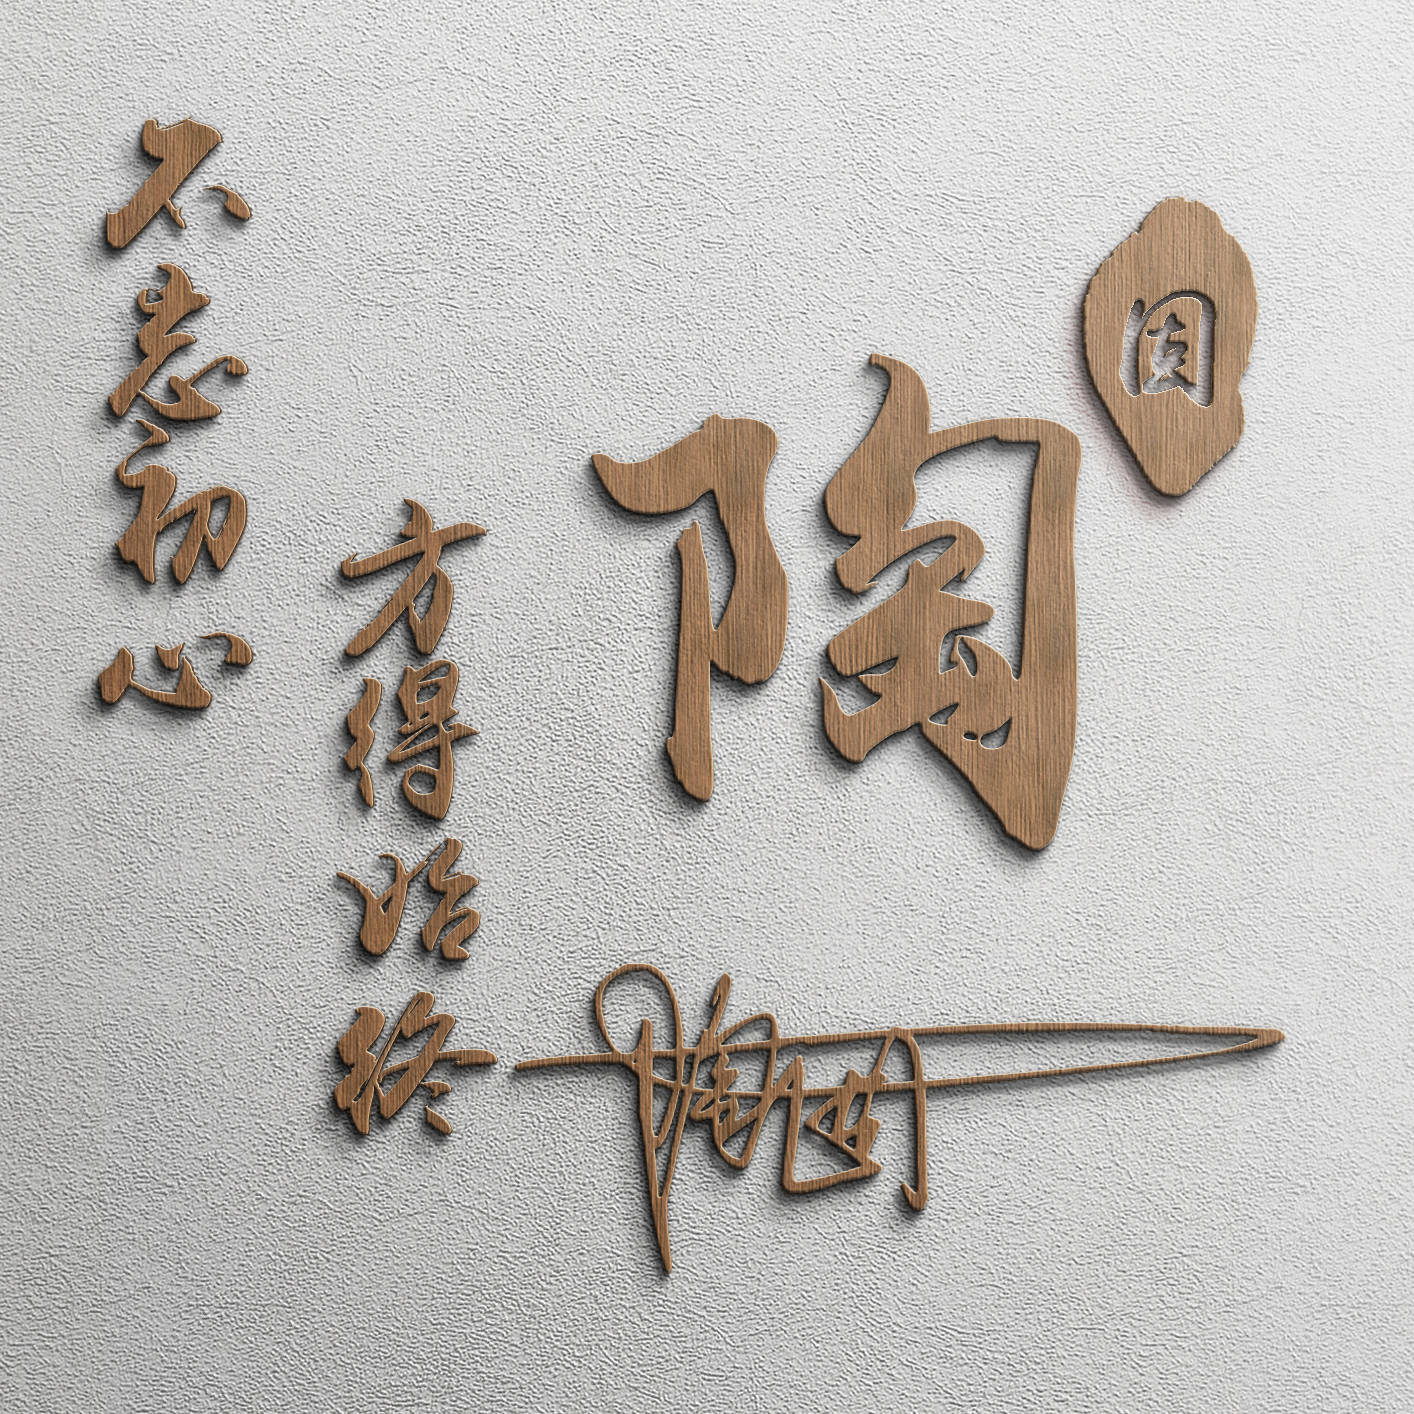 陶
不忘初心
方得始终